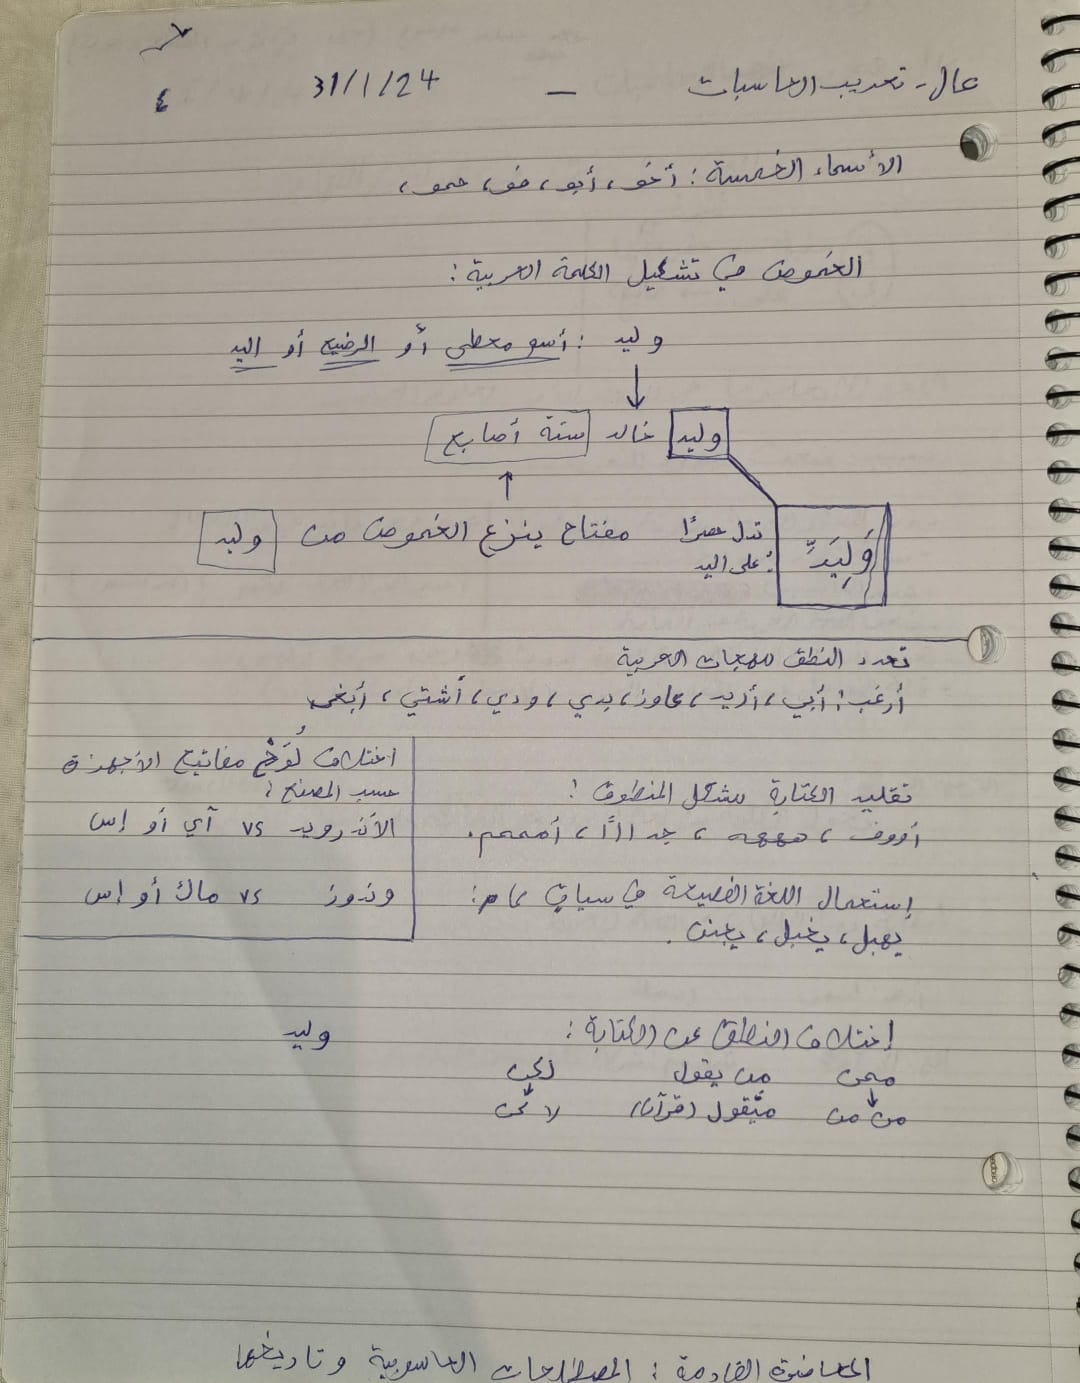 عال - تعريب الحاسبات – 31/1/24
٤
الأسماء الخمسة: أخو، أبو، فو، حمو،
الغموض في تشكيل الكلمة العربية:
وليد: أسو معطى أو الرضيع أو اليد
وليد خالد ستة أصابع
وَلِيَدِّ تدل حصرًا على اليد: مفتاح ينزع الغموض من وليد
تعدد النطق للهجات العربية
أرغب: أبي، أريد، عاوز، بدي، ودي، أشتي، أبغى
تقليد الكتابة بشكل المنطوق:
أووف، هههه، جدااًا، أمممم.
إستعمال اللغة الفصيحة في سياق عام:
يهبل، يخبل، يجنن.
اختلاف لَوْح مفاتيح الأجهزة
حسب المصنع:
الأندرويد vs آي أو إس
وندوز vs ماك أو إس
إختلاف النطق عن الكتابة: وليد
ممن من يقول لكن
من من ميّقول (قرآن) لا كن
المحاضرة القادمة: المصطلحات الحاسوبية وتاريخها